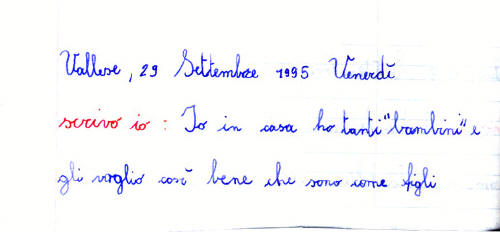 Vallese, 29 Settembre 1995 Venerdì
scrivo io: Io in casa ho tanti "bambini" e
gli voglio così bene che sono come figli